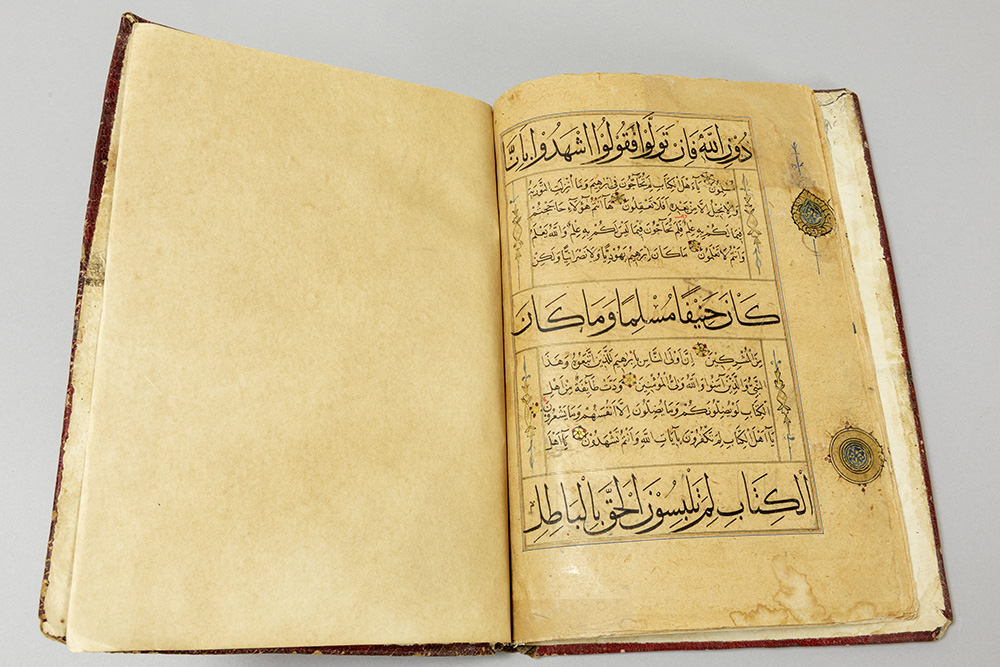 دُونِ اللَّهِ فَإِنْ تَوَلَّوْا فَقُولُوا اشْهَدُوا بِأَنَّا
مُسْلِمُونَ يَا أَهْلَ الْكِتَابِ لِمَ تُحَاجُّونَ فِي إِبْرٰهِيمَ وَمَا أُنْزِلَتِ التَّوْرٰيةُ
وَالْإِنْجِيلُ إِلَّا مِنْ بَعْدِهِ أَفَلَا تَعْقِلُونَ هَا أَنْتُمْ هَؤُلَاءِ حَاجَجْتُمْ
فِيمَا لَكُمْ بِهِ عِلْمٌ فَلِمَ تُحَاجُّونَ فِيمَا لَيْسَ لَكُمْ بِهِ عِلْمٌ وَاللَّهُ يَعْلَمُ
وَأَنْتُمْ لَا تَعْلَمُونَ مَا كَانَ إِبْرٰهِيمُ يَهُودِيًّا وَلَا نَصْرَانِيًّا وَلَكِنْ
كَانَ حَنِيفًا مُسْلِمًا وَمَا كَانَ
مِنَ الْمُشْرِكِينَ إِنَّ أَوْلَى النَّاسِ بِإِبْرٰهِيمَ لَلَّذِينَ اتَّبَعُوهُ وَهَذَا
النَّبِيُّ وَالَّذِينَ آمَنُوا وَاللَّهُ وَلِيُّ الْمُؤْمِنِينَ وَدَّتْ طَائِفَةٌ مِنْ أَهْلِ
الْكِتَابِ لَوْ يُضِلُّونَكُمْ وَمَا يُضِلُّونَ إِلَّا أَنْفُسَهُمْ وَمَا يَشْعُرُونَ
يَا أَهْلَ الْكِتَابِ لِمَ تَكْفُرُونَ بِآيَاتِ اللَّهِ وَأَنْتُمْ تَشْهَدُونَ يَا أَهْلَ
الْكِتَابِ لِمَ تَلْبِسُونَ الْحَقَّ بِالْبَاطِلِ